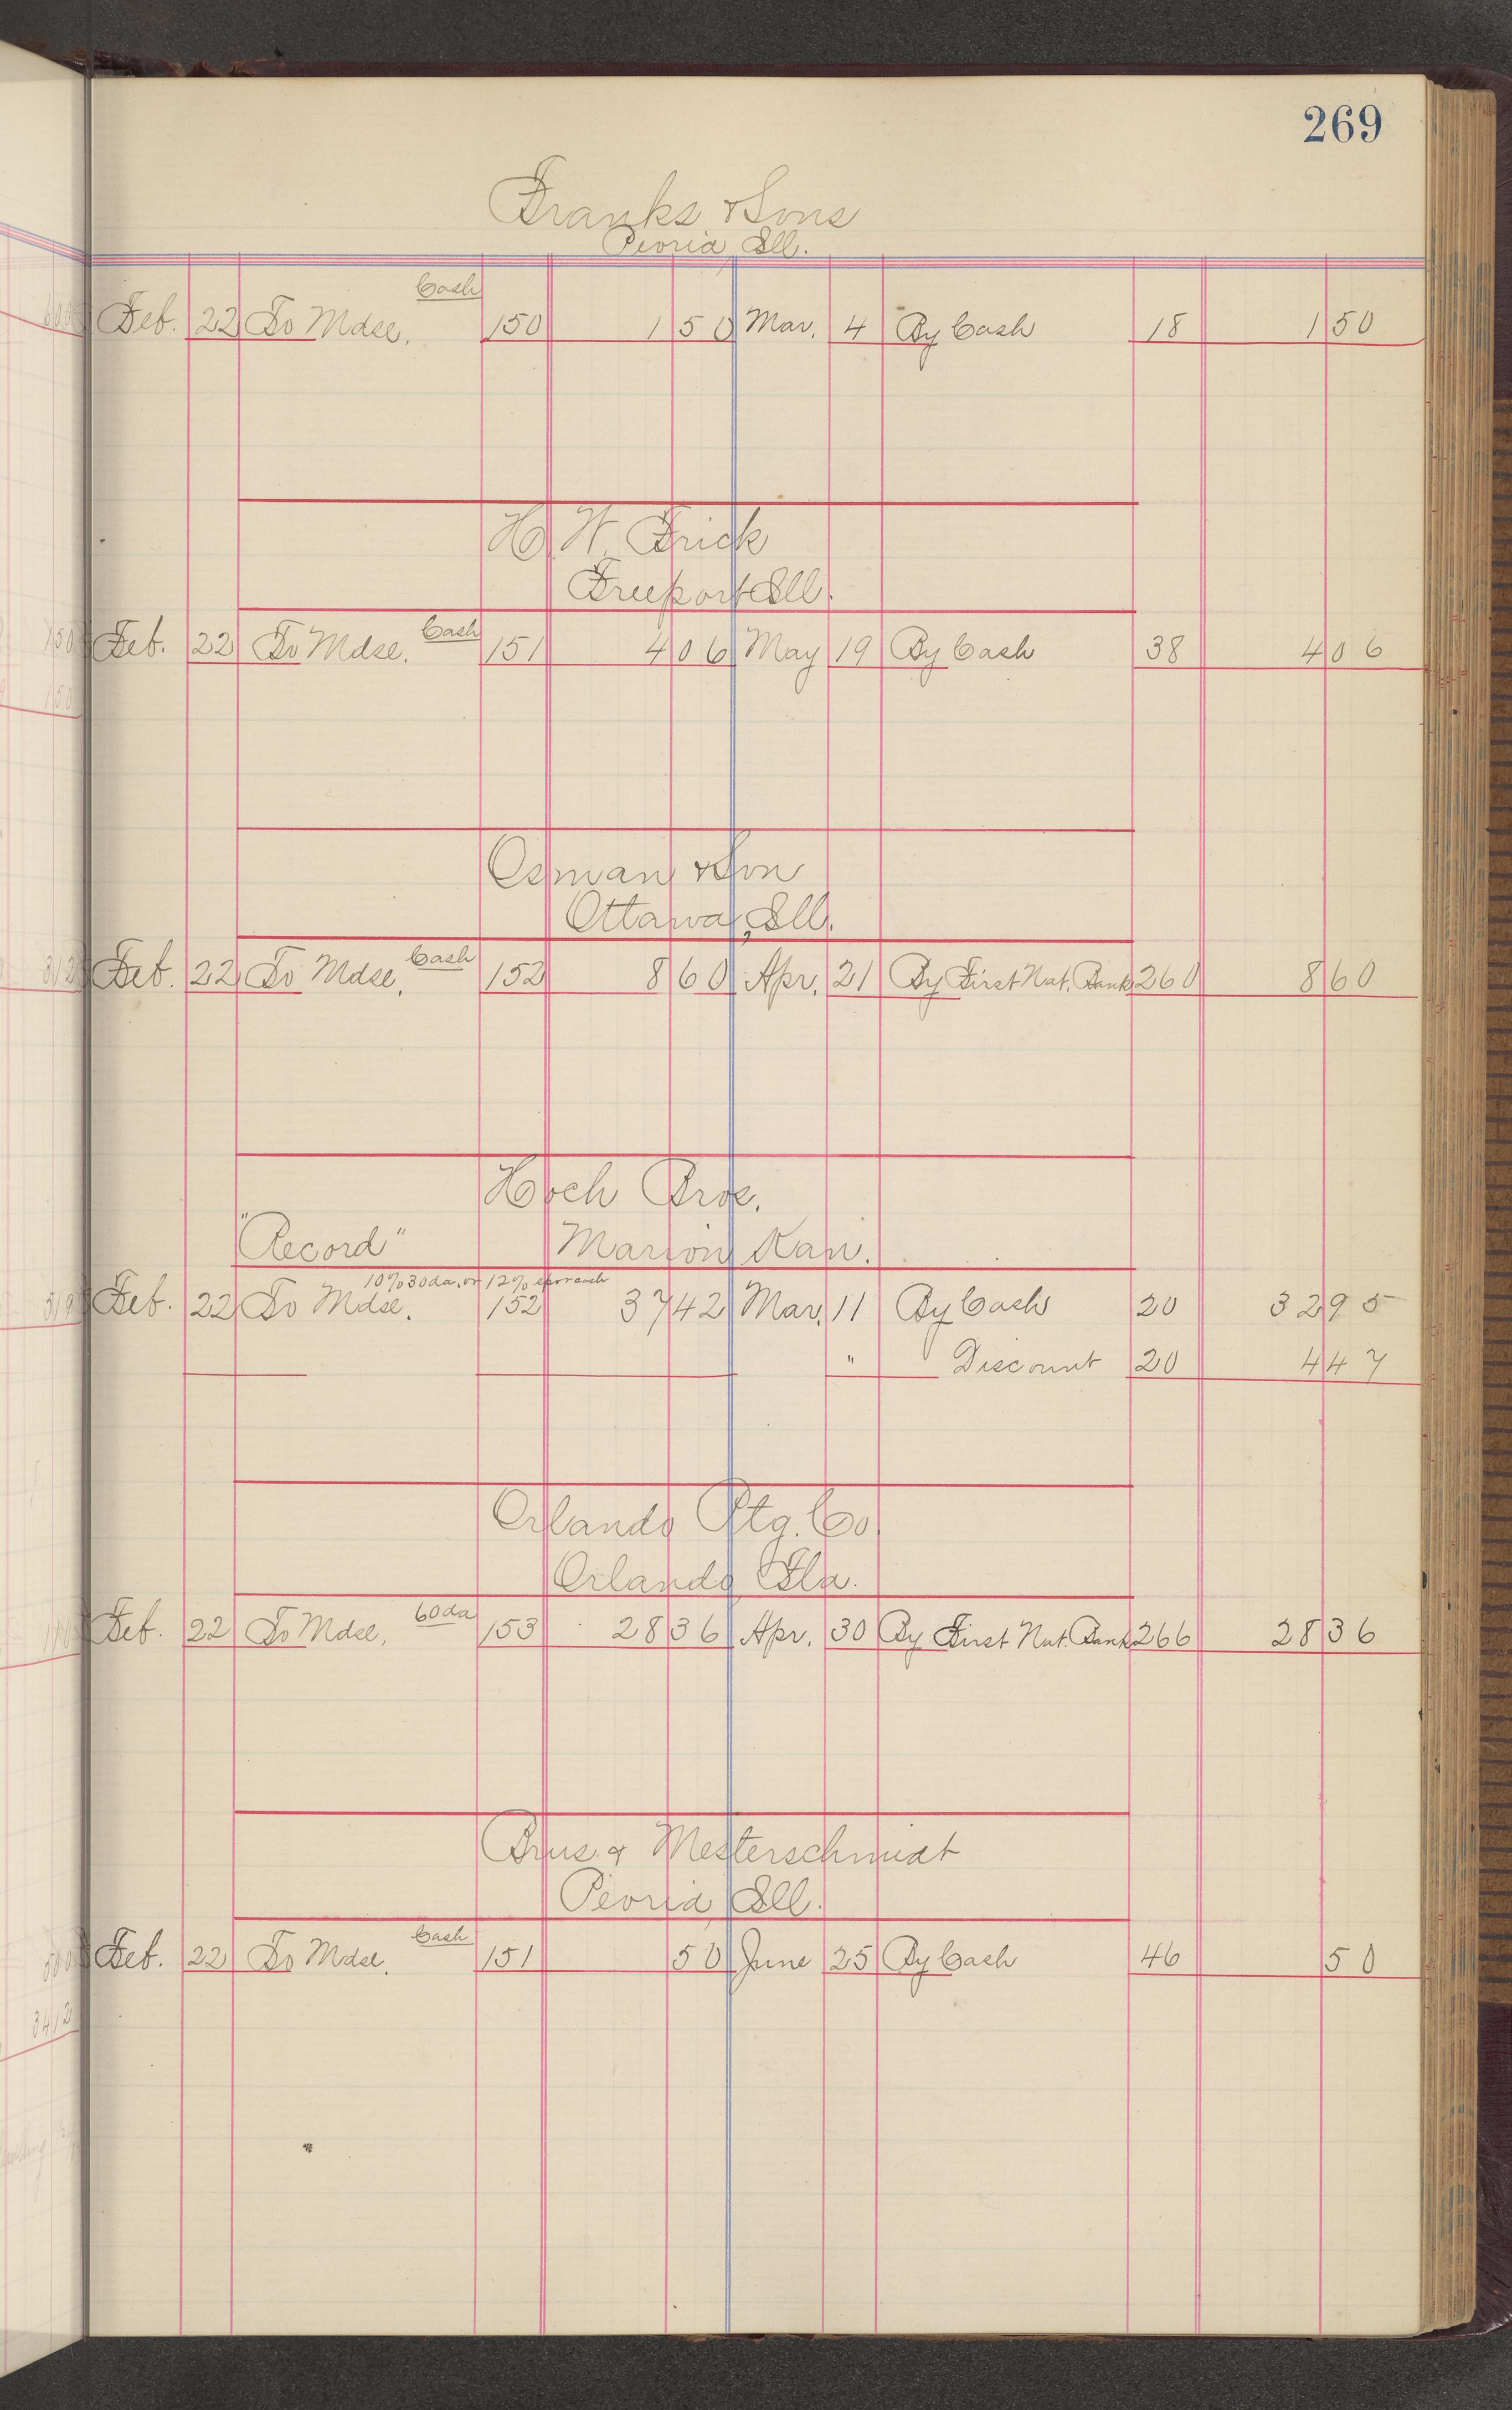 269
Franks & Sons
Peoria, Ill.
Cash
Feb. 22 To Mdse. 150 1 50 Mar. 4 By Cash 18 1 50
H. W. Frick
Freeport Ill.
Cash
Feb. 22 To Mdse. 151 4 06 May 19 By Cash 38 4 06
Osman & Son
Ottawa, Ill.
Cash
Feb. 22 To Mdse. 152 8 60 Apr. 21 By First Nat. Bank 260 8 60
Hoch Bros.
"Record" Marion Kan.
10% 30 da. or 12% for cash
Feb. 22 To Mdse. 152 37 42 Mar. 11 By Cash 20 32 95
" Discount 20 4 47
Orlando Ptg. Co.
Orlando Fla.
60 da
Feb. 22 To Mdse. 153 28 36 Apr. 30 By First Nat. Bank 266 28 36
& Mesterschmidt
Peoria, Ill.
Cash
Feb. 22 To Mdse. 151 50 June 25 By Cash 46 50